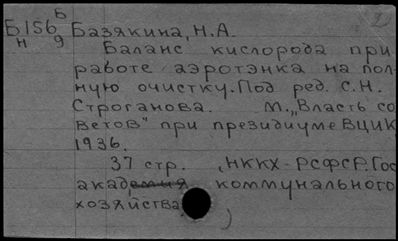 Б
Б156 Базякина, Н.А.
Н 9
Баланс кислорода при
работе аэротэнка на пол-
ную очистку. Под ред. С.Н.
Строганова. М. „Власть со
ветов" при президиуме ВЦИК
1936.
37 стр. (НККХ-РСФСР. Гос
академия коммунального
хозяйства)